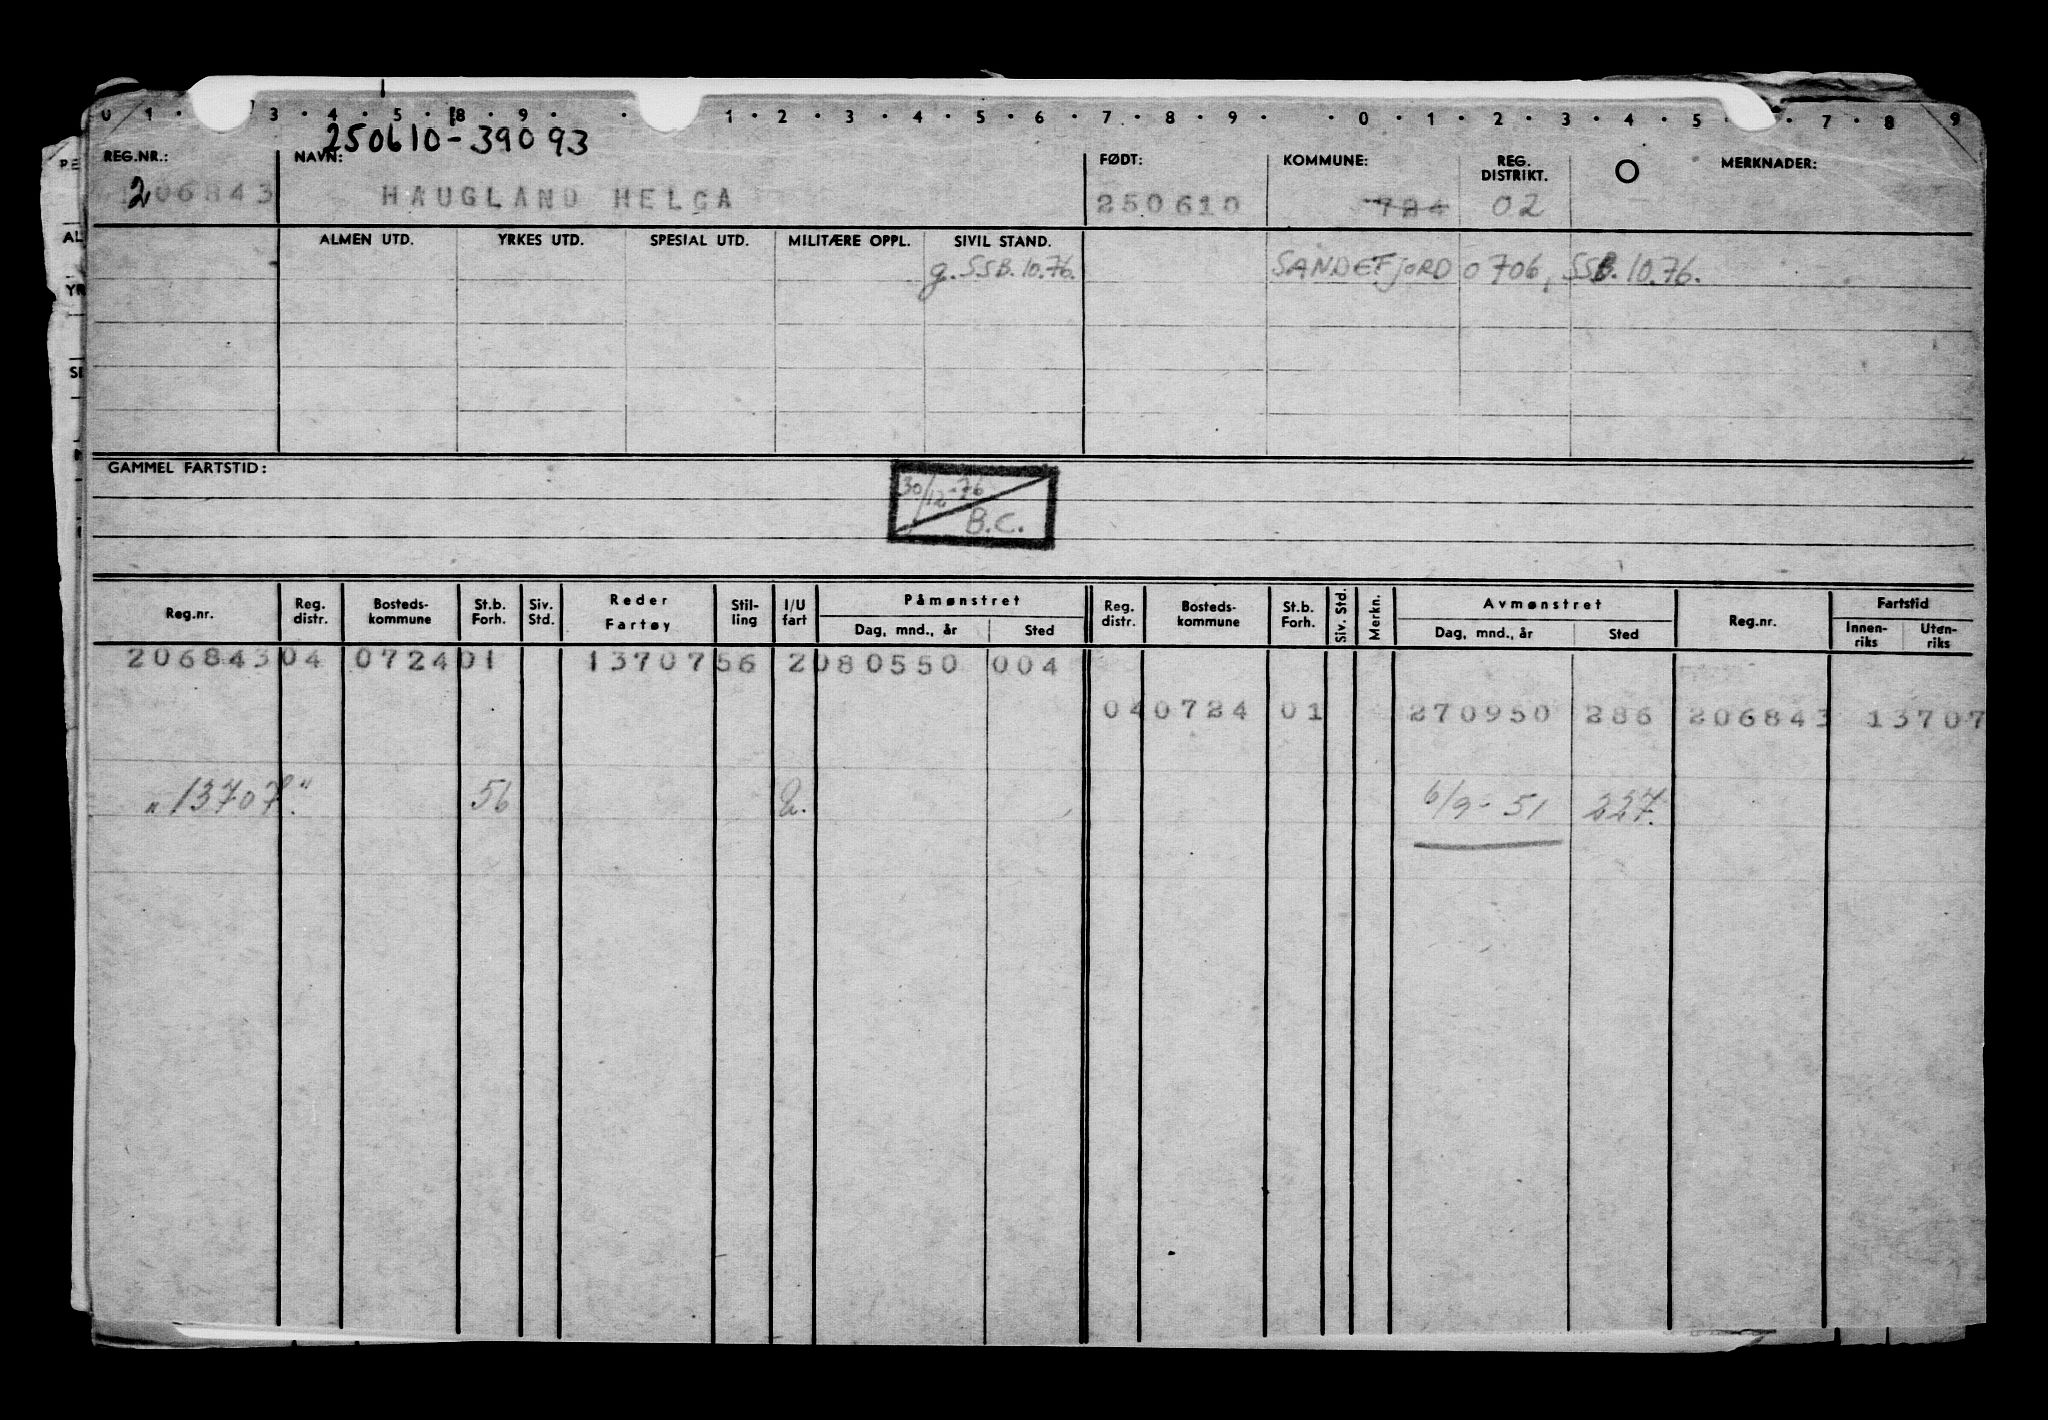 0 1 · 3 · 4 · 5 · 8 · 9 · · 1 · 2 · 3 · 4 · 5 · 6 · 7 · 8 · 9 · · 0 · 1 · 2 · 3 · 4 · 5 · 7 · 8 9
250610-39093
REG.NR.: NAVN: FØDT: KOMMUNE: REG. DISTRIKT. MERKNADER:
206843 HAUGLAND HELGA 250610 724 02
ALMEN UTD. YRKES UTD. SPESIAL UTD. MILITÆRE OPPL. SIVIL STAND.
g. SSB. 10.76. SANDEFJORD 0706, SSB. 10.76.
GAMMEL FARTSTID:
30/12-76
B.C.
Reg.nr. Reg. distr. Bosteds-kommune St.b. Forh. Siv. Std. Reder Fartøy Stil-ling I/U fart Påmønstret Dag, mnd., år Sted Reg. distr. Bosteds-kommune St.b. Forh. Siv. Std. Merkn. Avmønstret Dag, mnd., år Sted Reg.nr. Fartstid Innen-riks Uten-riks
206843 04 0724 01 13707 56 2 080550 004
04 0724 01 270950 286 206843 13707
„13707." 56 2. 6/9-51 227.